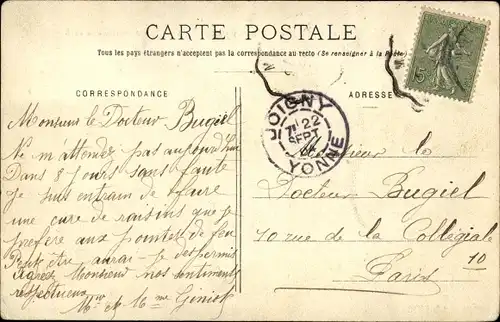 CARTE POSTALE
Tous les pays étrangers n'acceptent pas la correspondance au recto (Se renseigner à la Poste)
CORRESPONDANCE
ADRESSE
15
JOIGNY
22
SEPT
YONNE
Monsieur le Docteur Bugiel
Ne m'attendez pas aujourd'hui
Dans 8 jours sans faute
je suis entrain de faire
une cure de raisins que je
prefere aux pointes de feu
Agréez Monsieur nos sentiments
respectueux
Mr et Mme
Monsieur le
Docteur Bugiel
10 rue de la Collégiale
10
Paris